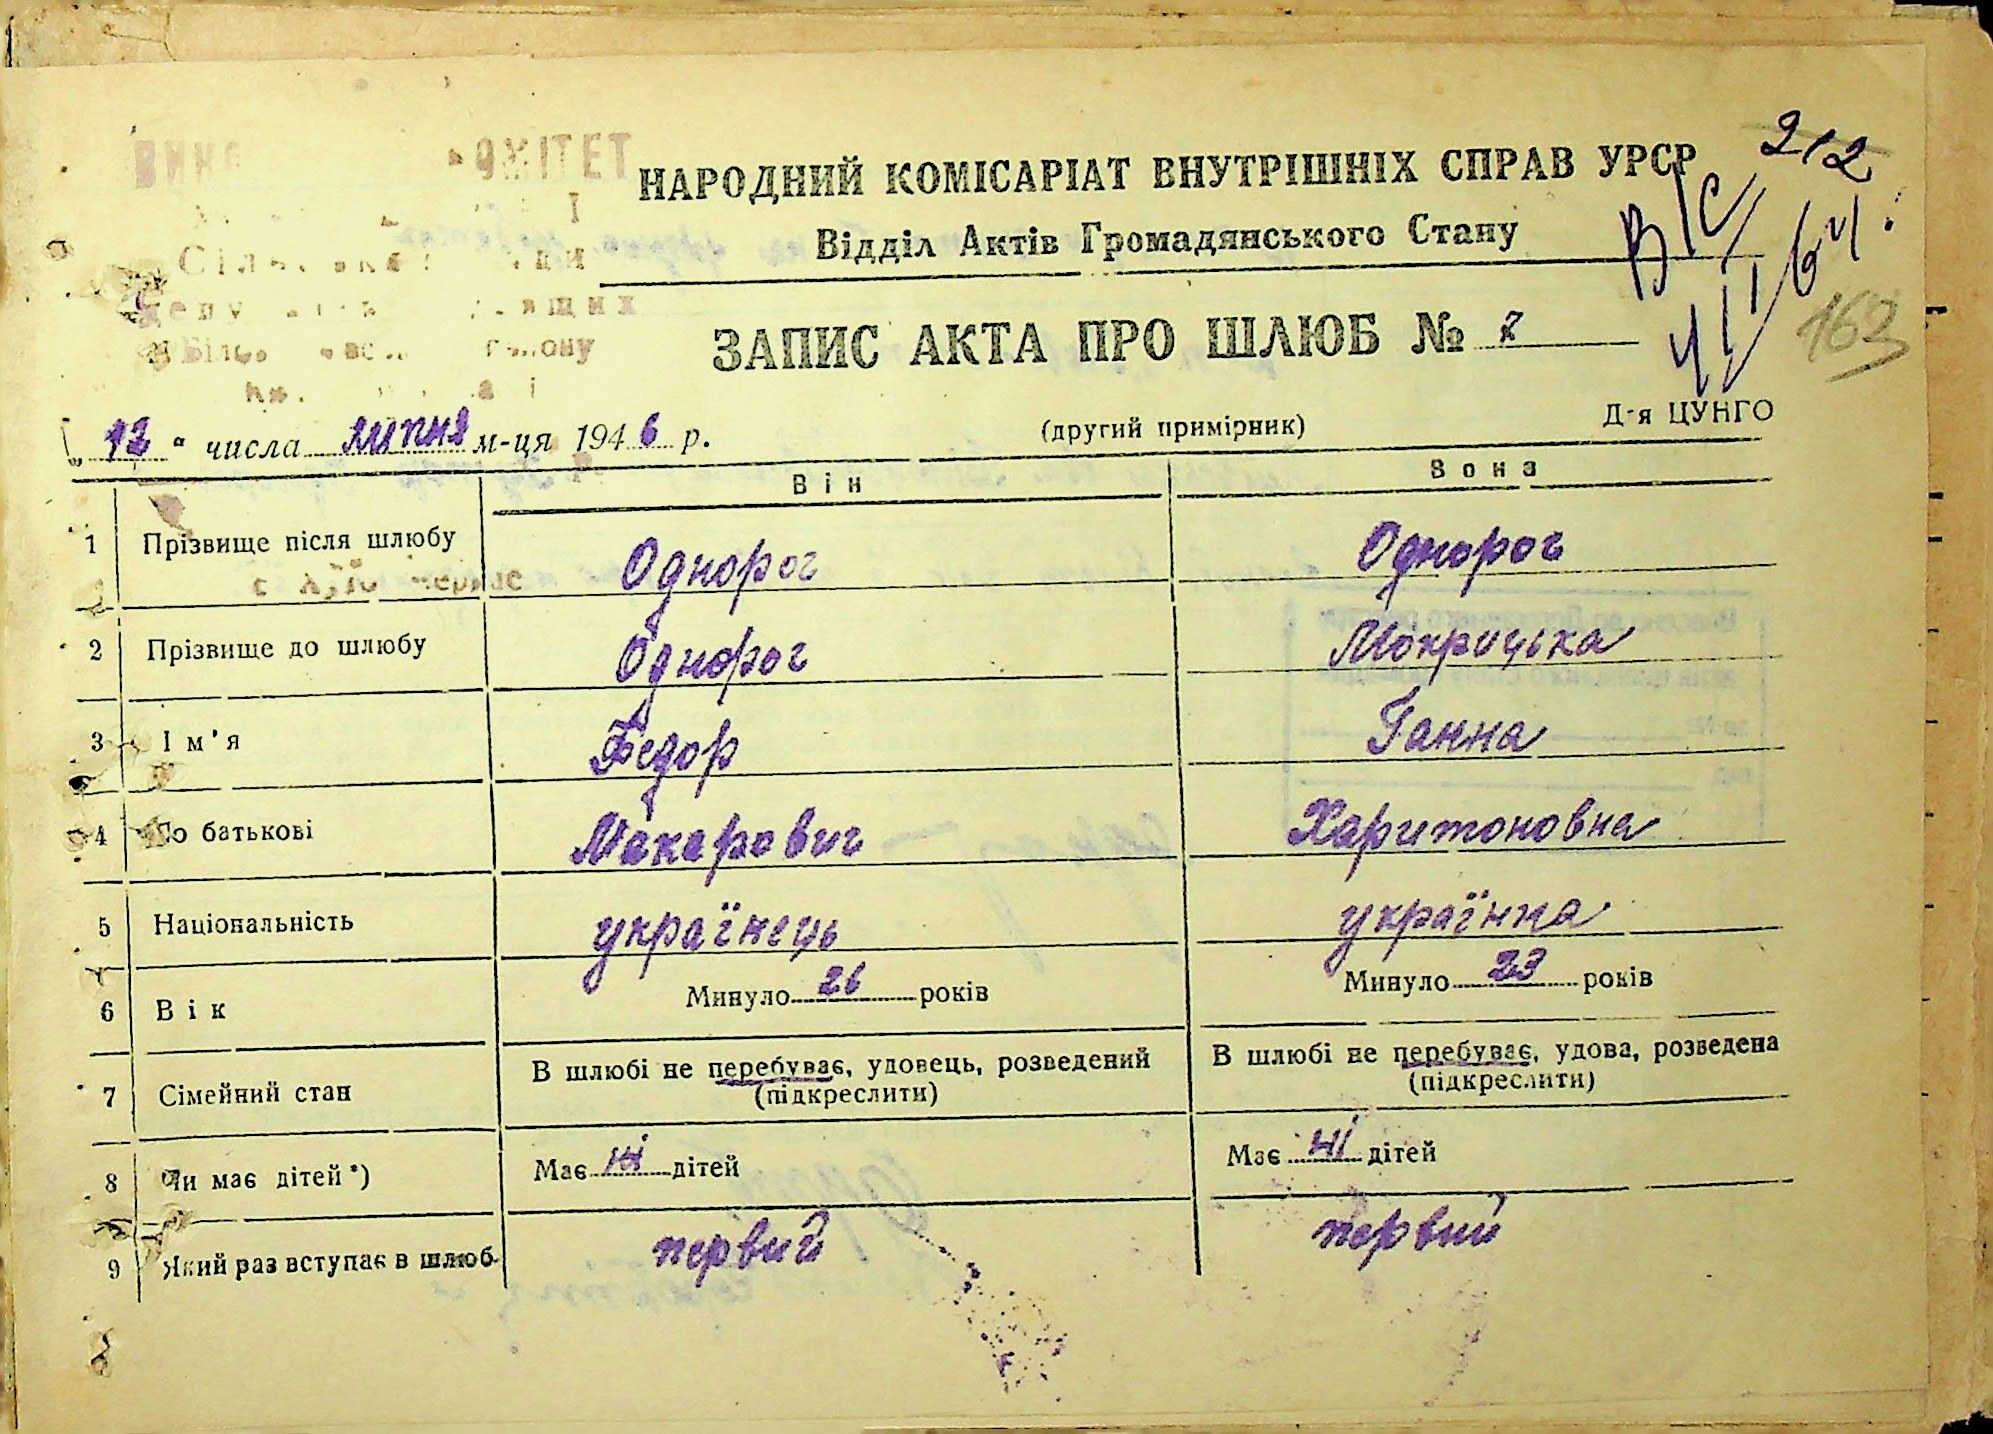 НАРОДНИЙ КОМІСАРІАТ ВНУТРІШНІХ СПРАВ УРСР
Відділ Актів Громадянського Стану
212
ЗАПИС АКТА ПРО ШЛЮБ №
163
„ 12 " числа липня м-ця 1946 р.
(другий примірник)
Д-я ЦУНГО
Він
Вона
1 Прізвище після шлюбу Однорог Однорог
2 Прізвище до шлюбу Однорог Мокрицька
3 Ім'я Федор Ганна
4 По батькові Макарович Харитоновна
5 Національність українець українка
6 Вік Минуло 26 років Минуло 23 років
7 Сімейний стан В шлюбі не перебуває, удовець, розведений (підкреслити) В шлюбі не перебуває, удова, розведена (підкреслити)
8 Чи має дітей*) Має ні дітей Має ні дітей
9 Який раз вступає в шлюб первий первий